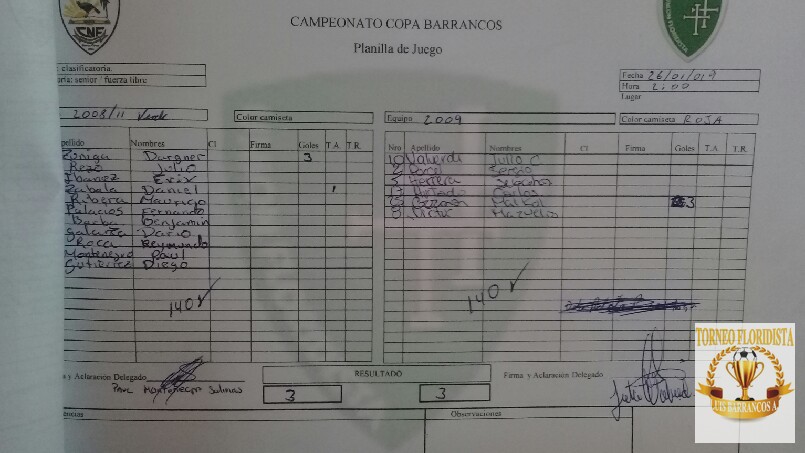 CNF
CAMPEONATO COPA BARRANCOS
Planilla de Juego
: clasificatoria
oria: senior / fuerza libre
Fecha 26/01/019
Hora 2:00
Lugar
2008/11 Verde Color camiseta
Equipo 2009 Color camiseta ROJA
pellido Nombres CI Firma Goles T.A. T.R.
Nro Apellido Nombres CI Firma Goles T.A. T.R.
Zuñiga Dargner 3
Rezo Julio
Ibañez Erix
Zabala Daniel
Ribera Mauricio
Palacios Fernando
Barba Benjamin
galarza Dario
Roca Reymundo
Montenegro Paul
Gutierrez Diego
10 Valverde Julio C
2 Sergio
3 Herrera
17 Hurtado Carlos
3
8
140
140
RESULTADO
a y Aclaración Delegado
Paul Montenegro Salinas
3
3
Firma y Aclaración Delegado
encias
Observaciones
TORNEO FLORIDISTA
LUIS BARRANCOS A.